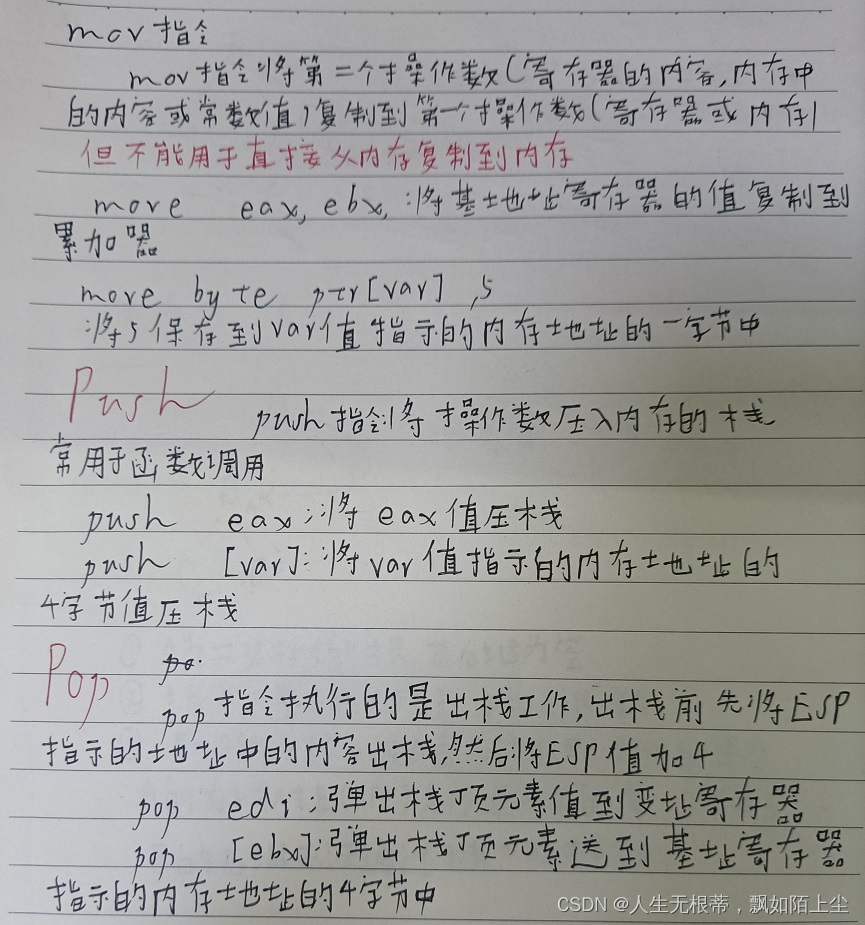 mov指令
mov指令将第二个操作数(寄存器的内容,内存中
的内容或常数值)复制到第一个操作数(寄存器或内存)
但不能用于直接从内存复制到内存
move eax, ebx, :将基地址寄存器的值复制到
累加器
move byte ptr[var] ,5
将5保存到var值指示的内存地址的一字节中
Push
push指令将操作数压入内存的栈
常用于函数调用
push eax:将eax值压栈
push [var]:将var值指示的内存地址的
4字节值压栈
Pop po.
pop指令执行的是出栈工作,出栈前先将ESP
指示的地址中的内容出栈,然后将ESP值加4
pop edi:弹出栈顶元素值到变址寄存器
pop [ebx]:弹出栈顶元素送到基址寄存器
指示的内存地址的4字节中
CSDN @人生无根蒂,飘如陌上尘